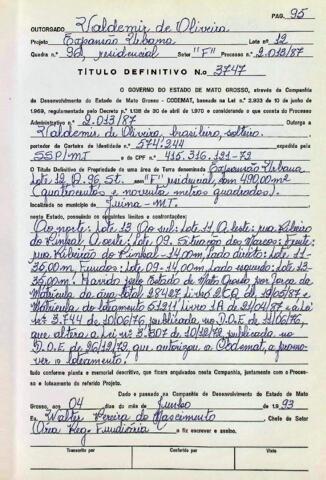 PAG. 95
OUTORGADO Valdemir de Oliveira
Projeto Expansão Urbana Lote nº 12
Quadra n.º 96, residencial Setor "F" Processo n.º 2.013/87
TÍTULO DEFINITIVO N.o 3747
O GOVERNO DO ESTADO DE MATO GROSSO, através da Companhia
de Desenvolvimento do Estado de Mato Grosso - CODEMAT, baseada na Lei n.º 2.933 de 10 de junho de
1969, regulamentada pelo Decreto n.º 1.138 de 30 de abril de 1970 e considerando o que consta do Processo
Administrativo n.º 2.013/87
Outorga a
Valdemir de Oliveira, brasileiro, solteiro.
portador da Carteira de Identidade n.º 574.244
SSP/MT e do CPF n.º 415.316.121-72
O Título Definitivo de Propriedade de uma área de Terra denominada Expansão Urbana
Lote 12 Q. 96 St. "F" residencial, com 490,00m²
(Quatrocentos e noventa metros quadrados).
localizada no município de Juina-MT.
neste Estado, possuindo os seguintes limites e confrontações:
Ao norte: lote 13 Ao sul: lote 11 A leste: rua Ribeirão
do Pinhal A oeste: lote 09. Situação dos Marcos: Frente:
rua Ribeirão do Pinhal - 14,00m, lado direito: lote 11-
35,00m Fundos: lote 09-14,00m, lado esquerdo: lote 13-
35,00m. Havido pelo Estado de Mato Grosso por força da
Matrícula da área total 28427 livro 2CQ de
Matrícula do loteamento livro 1A de 21/04/87 e a Lei
nº 3.744 de 10/06/76, publicada no D.O.E de 11/06/76,
que altera a Lei nº 3.307 de 10/12/72, publicada no
D.O.E de 26/12/72, que autorizou a Codemat, a promo-
ver o loteamento.
tudo conforme planta e memorial descritivo, que ficam arquivados nesta Companhia, juntamente com o Proces-
so e loteamento do referido Projeto.
Dado e passado na Companhia de Desenvolvimento do Estado de Mato
Grosso, aos 04 dias do mês de Junho de 1.993
Eu, Walter Pereira do Nascimento Chefe do Setor
Reg. Fundiária a fiz escrever e assino.
Transcrito por Conferido por Visto